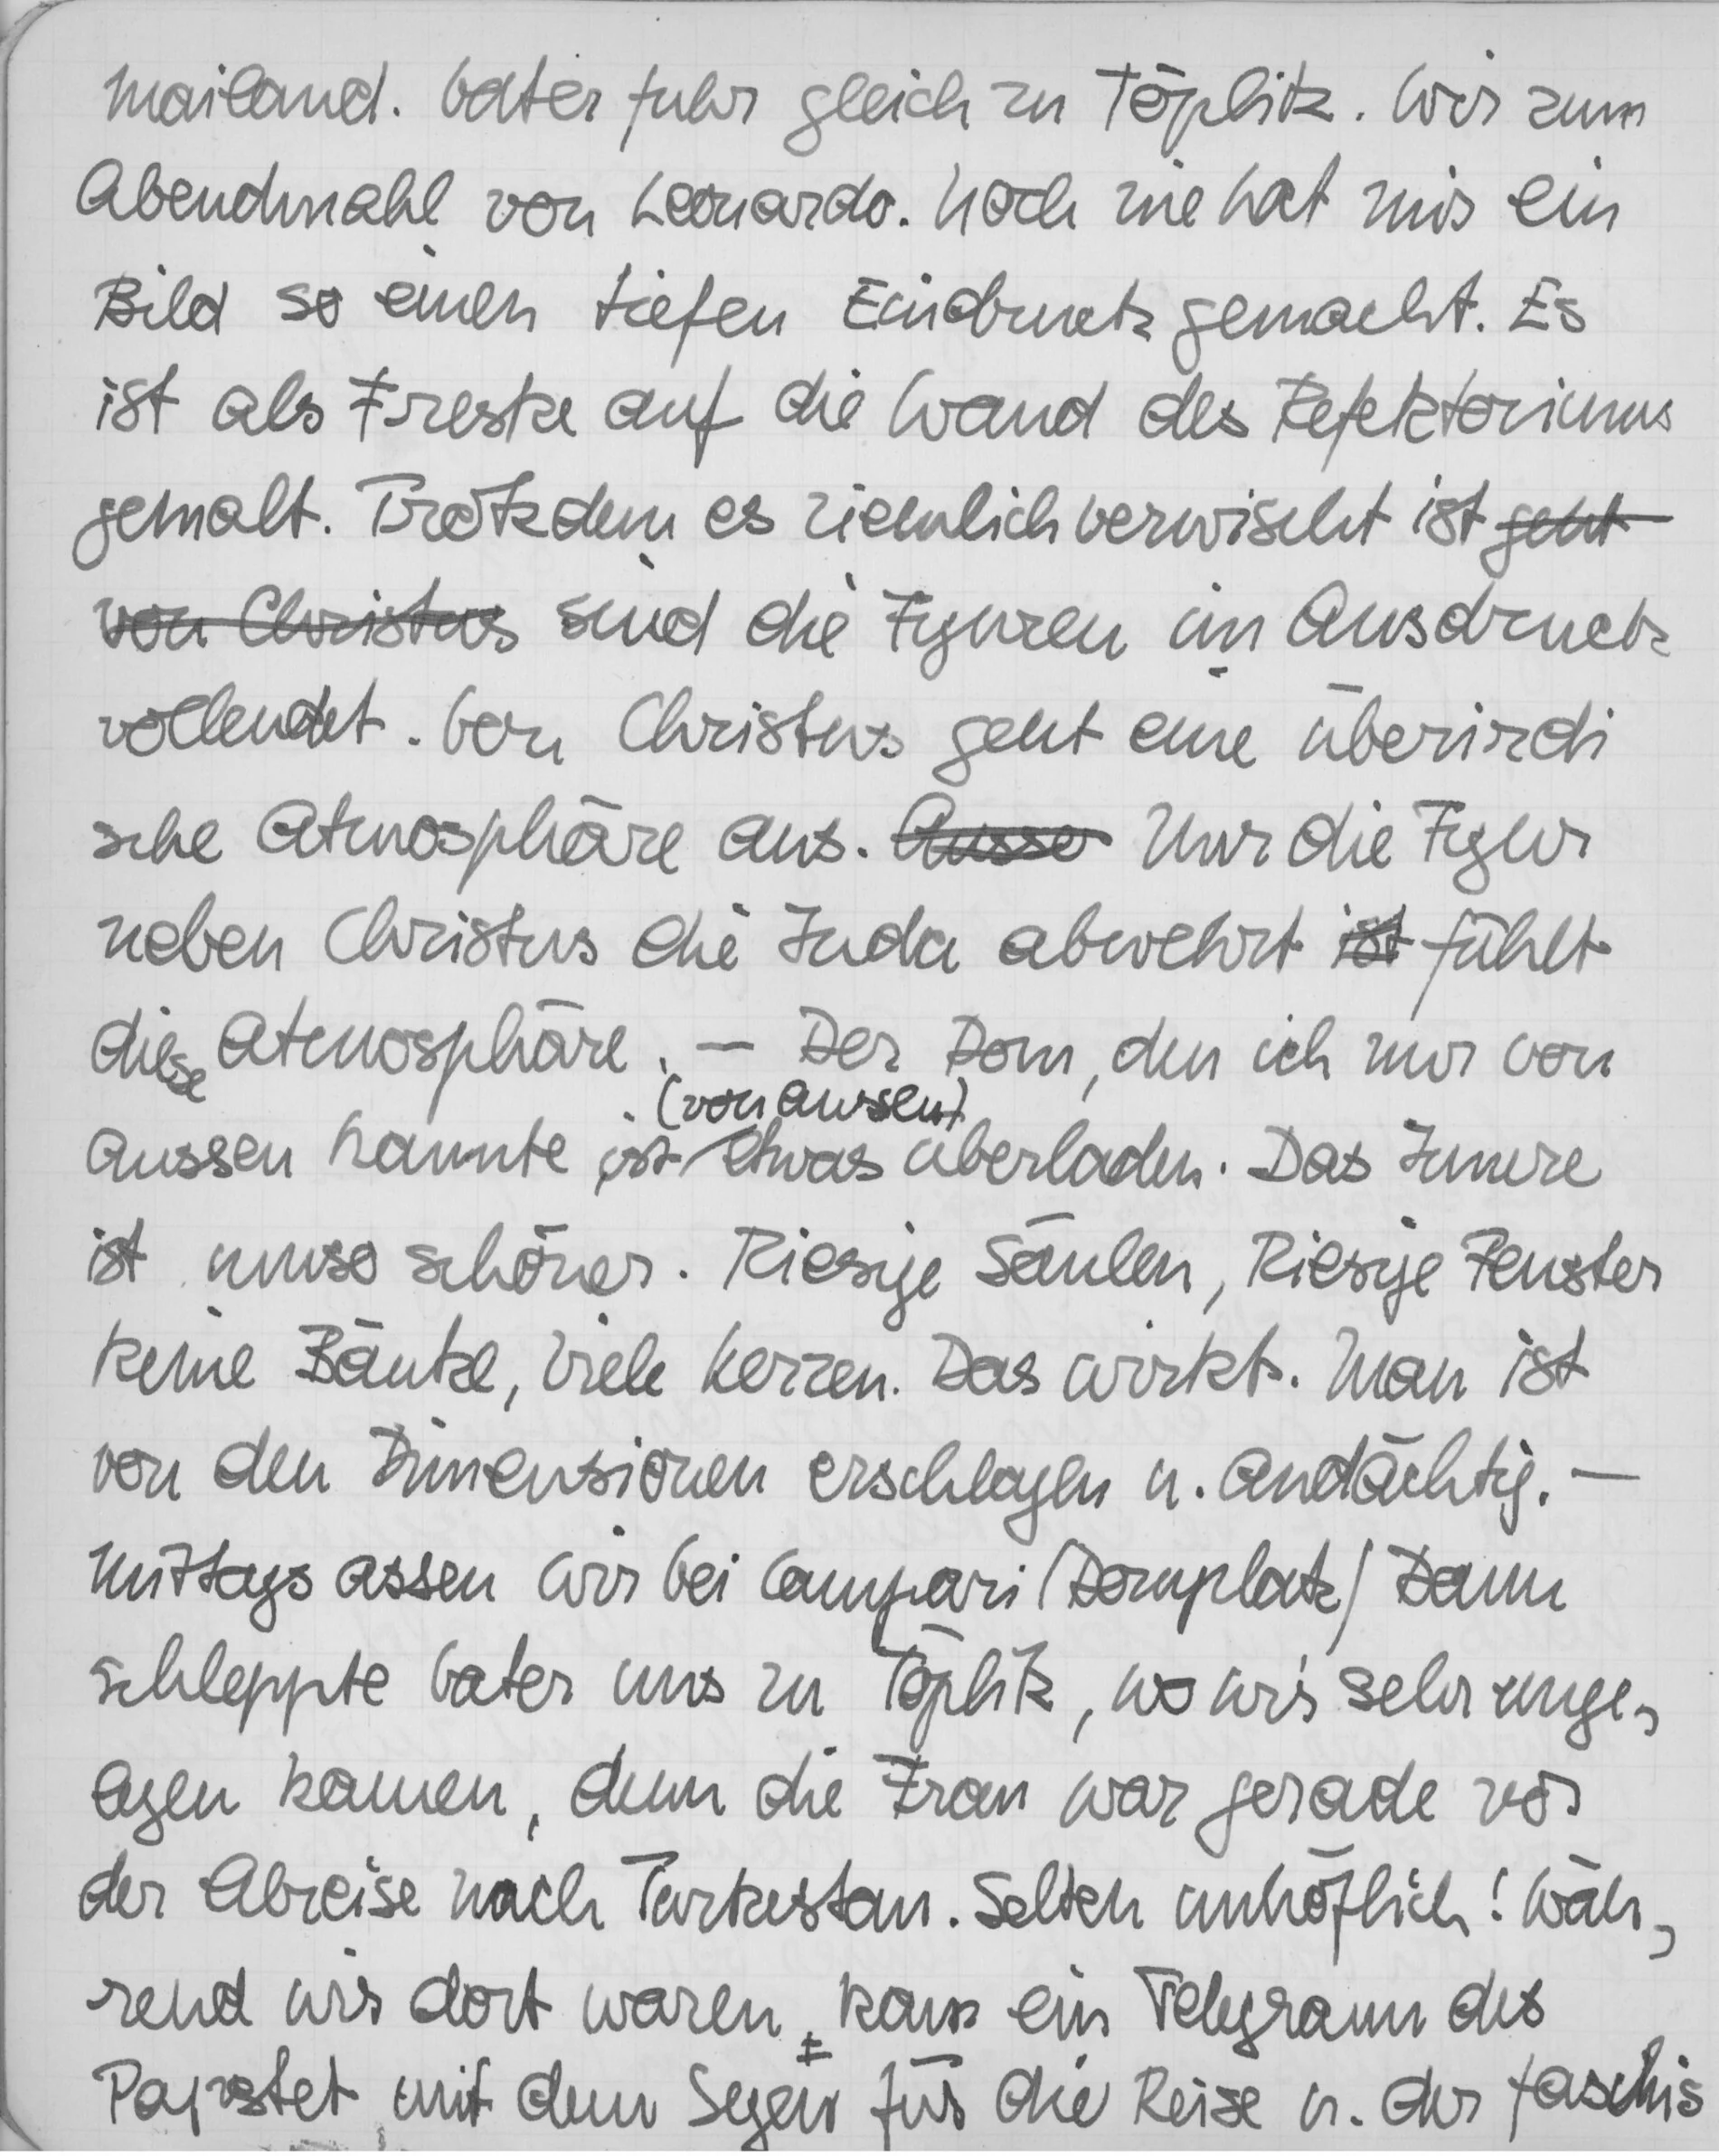 Mailand. Vater fuhr gleich zu Töplitz. Wir zum
Abendmahl von Leonardo. Noch nie hat mir ein
Bild so einen tiefen Eindruck gemacht. Es
ist als Freske auf die Wand des Refektoriums
gemalt. Trotzdem es ziemlich verwischt ist geht
von Christus sind die Figuren im Ausdruck
vollendet. Von Christus geht eine überirdi
sche Atmosphäre aus. Ausse Nur die Figur
neben Christus die Juda abwehrt ist fühlt
diese Atmosphäre. — Der Dom, den ich nur von
(von aussen)
aussen kannte ist etwas überladen. Das Innere
ist umso schöner. Riesige Säulen, Riesige Fenster
keine Bänke, viele Kerzen. Das wirkt. Man ist
von den Dimensionen erschlagen u. andächtig. —
Mittags assen wir bei Campari (Domplatz) Dann
schleppte Vater uns zu Töplitz, wo wir sehr unge,
agen kamen, denn die Frau war gerade vor
der Abreise nach Turkestan. Selten unhöflich! Wäh,
rend wir dort waren, kam ein Telegramm des
Papstet mit dem Segen für die Reise u. der faschis